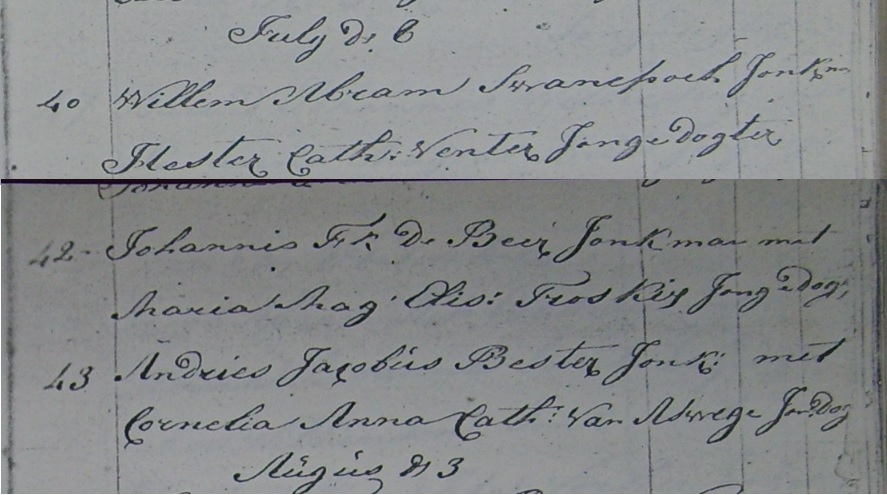 July ds 6
40 Willem Abram Swanepoel Jonkm
Hester Cath: Venter Jonge Dogter
42 - Johannis Fk De Beer Jonkman met
Maria Mag' Elis: Froskis Jong Dog:
43 Andries Jacobús Bester Jonk: met
Cornelia Anna Cath: Van Aswege Jon: Dog
Aúgús ds 3